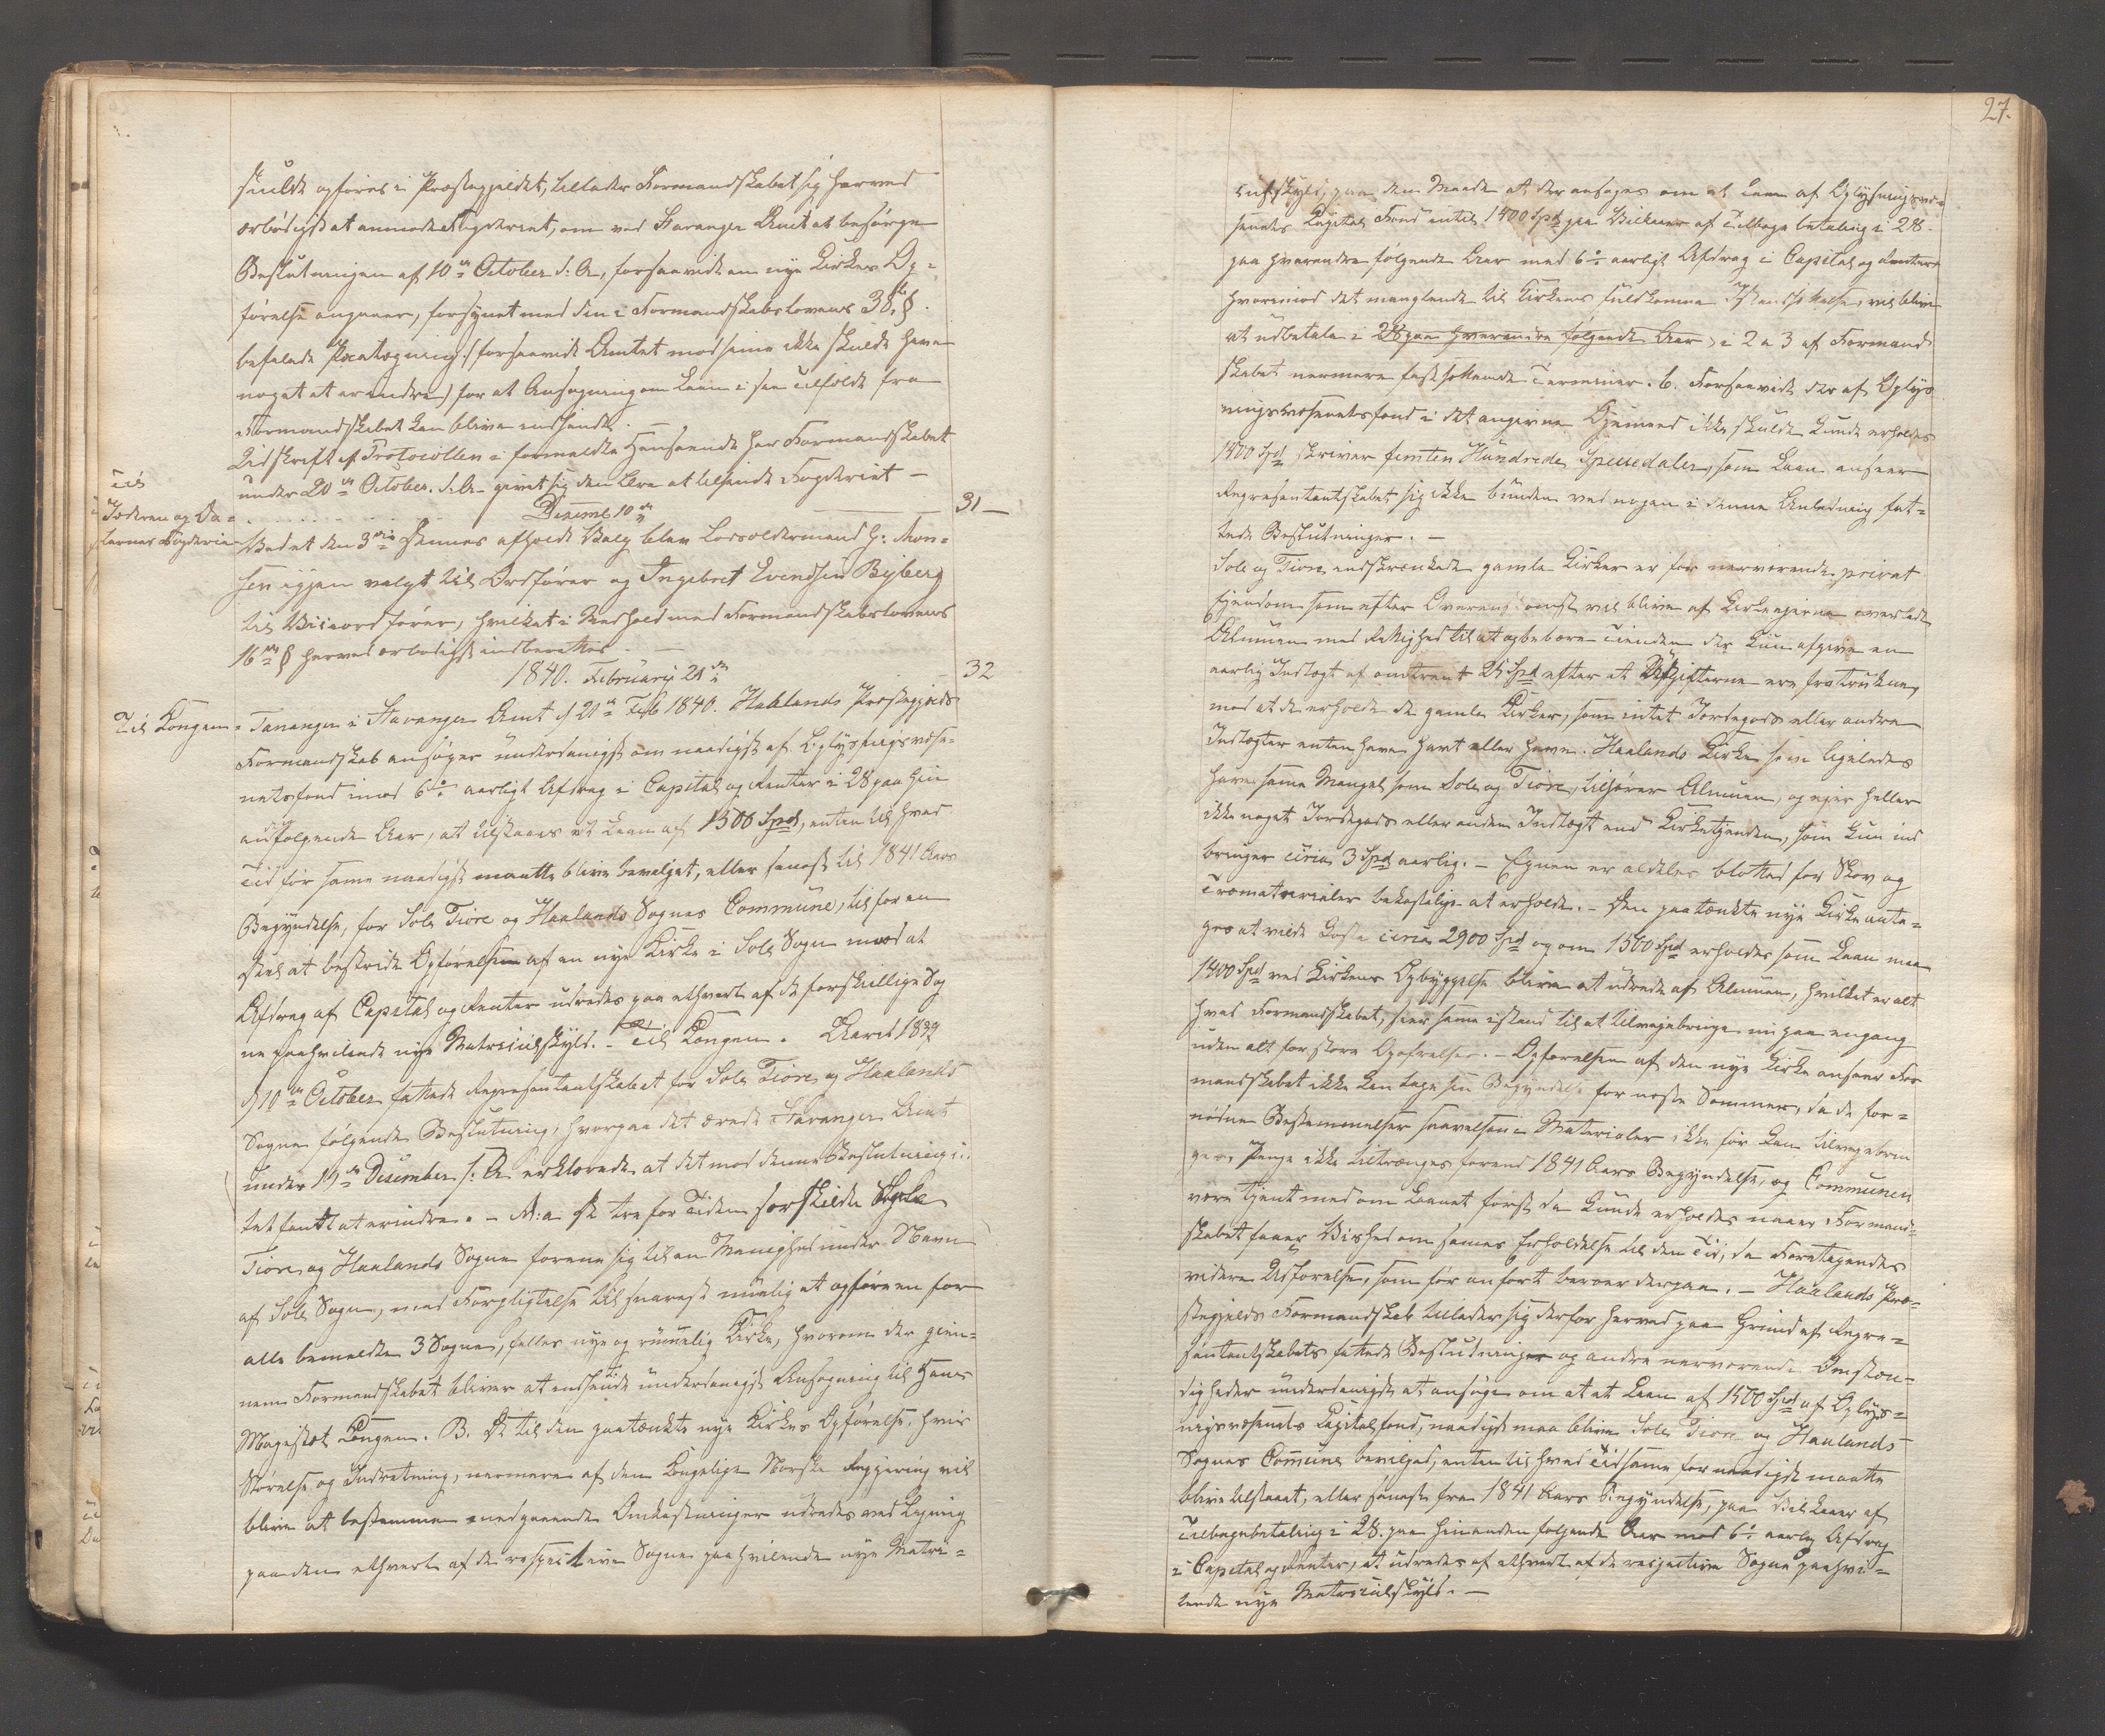 skulde opføres i Præstegjeldet, tillader Formandskabet sig herved
ærbødigst at anmode Fogderiet, om ved Stavanger Amt at besørge
Beslutningen af 10de October s: A, forsaavidt en nye Kirkes Op=
førelse angaaer, forsynet med den i Formandskabslovens 38te §.
befalede Paategning /: forsaavidt Amtet mod samme ikke skulde have
noget at erindre :/ for at Ansøgning om Laan i saa Tilfælde fra
Formandskabet kan blive indsendt. –
Udskrift af Protocollen i formeldte Henseende har Formandskabet
under 20de October. d. A. givet sig den Ære at tilsende Fogderiet –
31 –
Til
Jæderen og Da=
lernes Fogderie
Decemb 10de
Ved et den 3die dennes afholdt Valg blev Lodsoldermand H: Mon=
sen igjen valgt til Ordfører og Ingebret Evendsen Byberg
til Viceordfører, hvilket i Medhold med Formandskabslovens
16de § herved ærbødigst indberettes. –
32
1840. Februarii 21de
Til Kongen =
Tananger i Stavanger Amt d 21de Feb 1840. Haalands Præstegjelds
Formandskab ansøger underdanigst om naadigst af Oplysningsvæse=
netsfond imod 6 pc aarligt Afdrag i Capital og Renter i 28 paa hin
andfølgende Aar, at tilstaaes et Laan af 1500 Spd, enten til hvad
Tid før samme naadigst maatte blive bevilget, eller senest til 1841 Aars
Begyndelse, for Sole Tiore og Haalands Sognes Commune, til for en
Deel at bestride Opførelsen af en nye Kirke i Sole Sogn mod at
Afdrag af Capital og Renter udredes paa ethvert af de forskiellige Sog
ne paahvilende nye Matriculskyld. – Til Kongen. Aaret 1839
d 10de October fattede Repræsentantskabet for Sole Tiore og Haalands
Sogne følgende Beslutning, hvorpaa det ærede Stavanger Amt
under 19de December s: A. erklærede at det mod denne Beslutning in
tet fandt at erindre. – A: a De tre for Tiden særskilte Sole
Tiore og Haalands Sogne forene sig til en Menighed under Navn
af Sole Sogn, med Forpligtelse til snarest muelig at opføre en for
alle bemeldte 3 Sogne, fælles nye og rummelig Kirke, hvorom der gien=
nem Formandskabet bliver at indsende underdanigst Ansøgning til Hans
Magestæt Kongen. B. At til den paatænkte nye Kirkes Opførelse, hvis
Størrelse og Indretning, nærmere af den Kongelige Norske Regjering vil
blive at bestemme medgaaende Omkostninger udredes ved Ligning
paa den ethvert af de respective Sogne paahvilende nye Matri=
27.
culskyld, paa den Maade at der ansøges om et Laan af Oplysningsvæ=
senets Capital Fond intil 1500 Spd paa Vilkaar af Tilbagebetaling i 28.
paa hverandre følgende Aar med 6 pc aarligt Afdrag i Capital og Renter
hvorimod det manglende til Kirkens fuldkomne Istandsættelse, vil blive
at udbetale i 28 paa hverandre følgende Aar i 2 a 3 af Formand
skabet nærmere fastsættende Terminer. C. Forsaavidt der af Oplys
ningsvæsenetsfond i det angivne Øiemeed ikke skulde kunde erholdes
1500 Spd skriver femten Hundrede Speciedaler, som Laan anseer
Repræsentantskabet sig ikke bunden ved nogen i denne Anledning fat=
tede Beslutninger. –
Sole og Tiore indskrænkede gamle Kirker er for nærværende privat
Eiendom som efter Overenskomst vil blive af Kirkeejerne overladt
Almuen med Rettighed til at oppebære Tienden der kun afgive en
aarlig Indtægt af omtrent 25 Spd efter at Udgifterne ere fratrukne
mod at de erholde de gamle Kirker, som intet Jordegods eller andre
Indtægter enten have havt eller have. Haalands Kirke som ligeledes
have samme Mangel som Sole og Tiore, tilhører Almuen, og ejer heller
ikke noget Jordegods eller anden Indtægt end Kirketjenden, som kun ind
bringer circa 3 Spd aarlig. – Egnen er aldeles blottet for Skov og
Træmaterialer bekostelige at erholde. – Den paatænkte nye Kirke anta=
ges at vilde koste circa 2900 Spd og om 1500 Spd erholdes som Laan maa
1400 Spd ved Kirkens Opbyggelse blive at udrede af Almuen, hvilket er alt
hvad Formandskabet, seer samme istand til at tilvejebringe nu paa engang
uden alt for store Opofrelser. – Opførelsen af den nye Kirke anseer For
mandskabet ikke kan tage sin Begyndelse før næste Sommer, da de for=
nødne Bestemmelser saavelsom Materialer ikke før kan tilvejebrin
ges, Penge ikke tiltrænges førend 1841 Aars Begyndelse, og Communen
være tjent med om Laanet først da kunde erholdes naaer Formand=
skabet faaer Vished om sammes Erholdelse til den Tid, da Foretagendes
videre Udførelse, som før anført beroer derpaa. – Haalands Præ=
stegjelds Formandskab tillader sig derfor herved paa Grund af Repræ=
sentantskabets fattede Beslutninger og andre nærværende Omstæn=
digheder underdanigst at ansøge om at et Laan af 1500 Spd af Oplys=
ningsvæsenets Capitalfond, naadigst maa blive Sole Tiore og Haalands
Sognes Commune bevilget, enten til hvad Tid samme før naadigst maatte
blive tilstaaet, eller senest fra 1841 Aars Begyndelse, paa Vilkaar af
Tilbagebetaling i 28. paa hinanden følgende Aar med 6 pc aarlig Afdrag
i Capital og Renter, at udredes af ethvert af de respective Sogne paahvi=
lende nye Matriculskyld. –